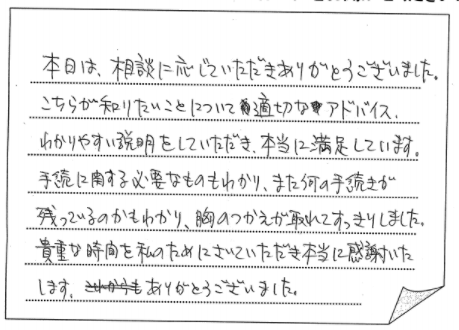 本日は、相談に応じていただきありがとうございました。
こちらが知りたいことについて適切なアドバイス、
わかりやすい説明をしていただき、本当に満足しています。
手続に関する必要なものもわかり、また何の手続きが
残っているのかもわかり、胸のつかえが取れてすっきりしました。
貴重な時間を私のためにさいていただき本当に感謝いた
します。これからもありがとうございました。